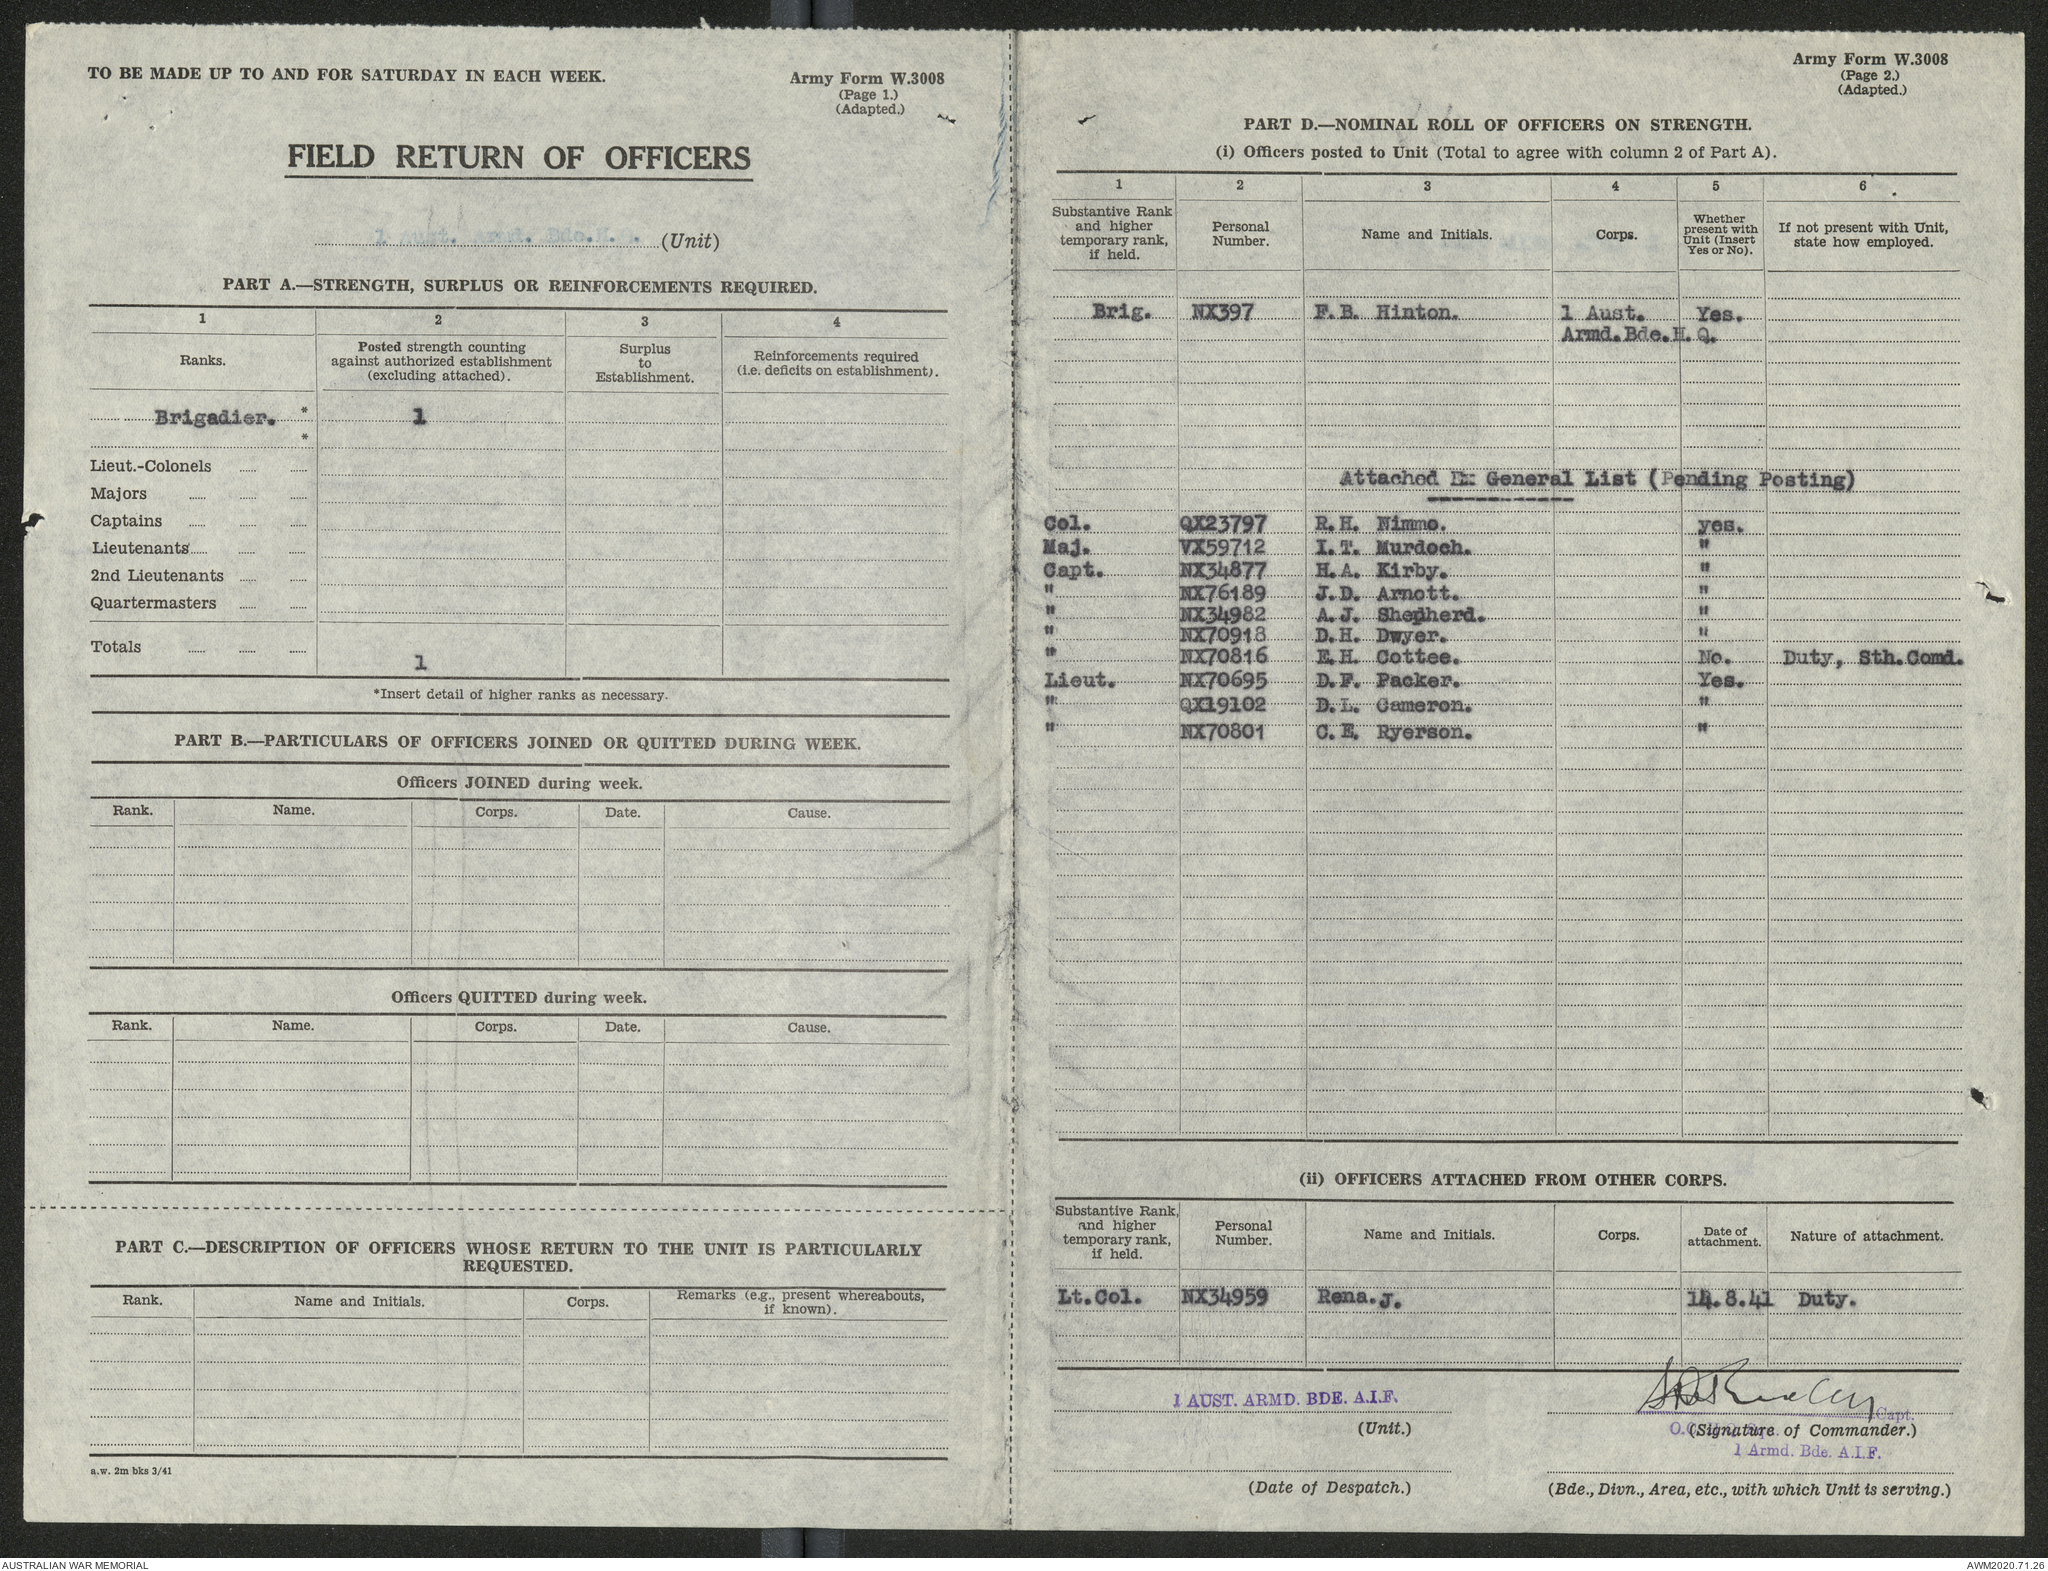 TO BE MADE UP TO AND FOR SATURDAY IN EACH WEEK.
Army Form W.3008
(Page 1.)
(Adapted.)
FIELD RETURN OF OFFICERS
1 Aust. Armd. Bde.H.Q. (Unit)
PART A.—STRENGTH, SURPLUS OR REINFORCEMENTS REQUIRED.
1 2 3 4
Ranks. Posted strength counting against authorized establishment (excluding attached). Surplus to Establishment. Reinforcements required (i.e. deficits on establishment).
Brigadier. * 1
*
Lieut.-Colonels
Majors
Captains
Lieutenants
2nd Lieutenants
Quartermasters
Totals 1
*Insert detail of higher ranks as necessary.
PART B.—PARTICULARS OF OFFICERS JOINED OR QUITTED DURING WEEK.
Officers JOINED during week.
Rank. Name. Corps. Date. Cause.
Officers QUITTED during week.
Rank. Name. Corps. Date. Cause.
PART C.—DESCRIPTION OF OFFICERS WHOSE RETURN TO THE UNIT IS PARTICULARLY
REQUESTED.
Rank. Name and Initials. Corps. Remarks (e.g., present whereabouts, if known).
a.w. 2m bks 3/41
Army Form W.3008
(Page 2.)
(Adapted.)
PART D.—NOMINAL ROLL OF OFFICERS ON STRENGTH.
(i) Officers posted to Unit (Total to agree with column 2 of Part A).
1 2 3 4 5 6
Substantive Rank and higher temporary rank, if held. Personal Number. Name and Initials. Corps. Whether present with Unit (Insert Yes or No). If not present with Unit, state how employed.
Brig. NX397 F.B. Hinton. 1 Aust. Yes.
Armd.Bde.H.Q.
Attached Ex General List (Pending Posting)
Col. QX23797 R.H. Nimmo. yes.
Maj. VX59712 I.T. Murdoch. "
Capt. NX34877 H.A. Kirby. "
" NX76189 J.D. Arnott. "
" NX34982 A.J. Shepherd. "
" NX70918 D.H. Dwyer. "
" NX70816 E.H. Cottee. No. Duty, Sth.Comd.
Lieut. NX70695 D.F. Packer. Yes.
" QX19102 D.L. Cameron. "
" NX70801 C.E. Ryerson. "
(ii) OFFICERS ATTACHED FROM OTHER CORPS.
Substantive Rank, and higher temporary rank, if held. Personal Number. Name and Initials. Corps. Date of attachment. Nature of attachment.
Lt.Col. NX34959 Rena.J. 14.8.41 Duty.
1 AUST. ARMD. BDE. A.I.F.
(Unit.)
Capt.
(Signature of Commander.)
1 Armd. Bde. A.I.F.
(Date of Despatch.)
(Bde., Divn., Area, etc., with which Unit is serving.)
AUSTRALIAN WAR MEMORIAL
AWM2020.71.26